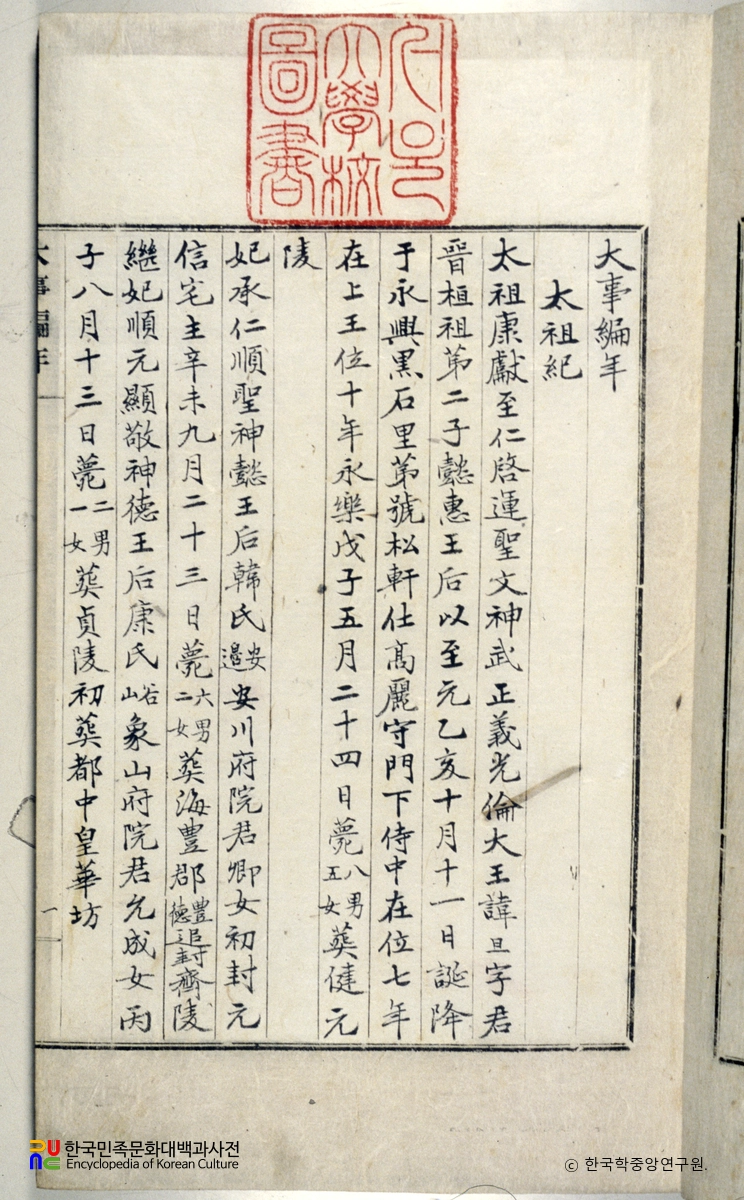 서울大學校圖書
大事編年
太祖紀
太祖康獻至仁啓運聖文神武正義光倫大王諱旦字君
晉桓祖第二子懿惠王后以至元乙亥十月十一日誕降
于永興黑石里第號松軒仕高麗守門下侍中在位七年
在上王位十年永樂戊子五月二十四日薨八男五女葬健元
陵
妃承仁順聖神懿王后韓氏安邊安川府院君卿女初封元
信宅主辛未九月二十三日薨六男二女葬海豊郡豊德追封齊陵
繼妃順元顯敬神德王后康氏谷山象山府院君允成女丙
子八月十三日薨二男一女葬貞陵初葬都中皇華坊
大事編年 一
한국민족문화대백과사전
Encyclopedia of Korean Culture
© 한국학중앙연구원.